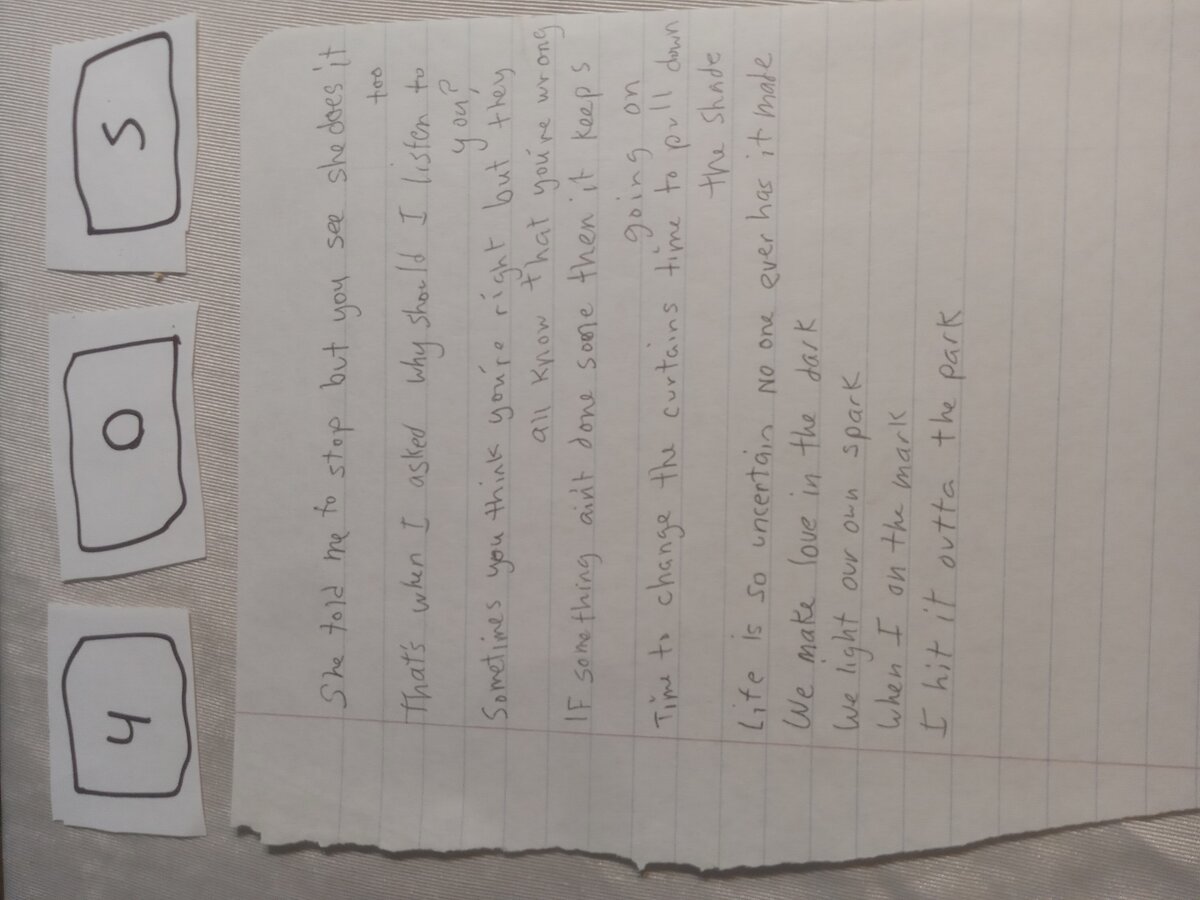 4 0 5
She told me to stop but you see she does it
too
That's when I asked why should I listen to
you?
Sometimes you think you're right but they
all know that you're wrong
IF something ain't done some then it keeps
going on
Time to change the curtains time to pull down
the shade
Life is so uncertain No one ever has it made
We make love in the dark
We light our own spark
When I on the mark
I hit it outta the park